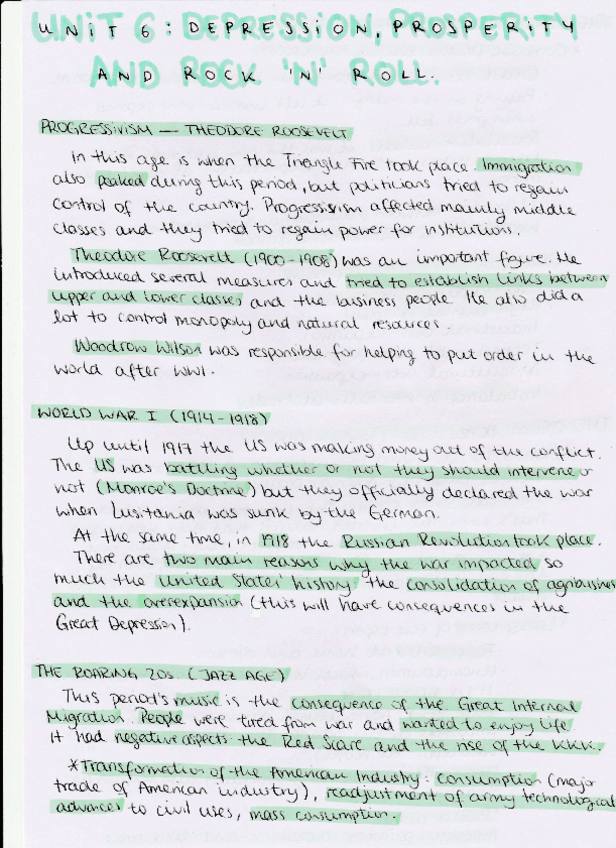 UNIT 6: DEPRESSION, PROSPERITY
AND ROCK 'N' ROLL.
PROGRESSIVISM — THEODORE ROOSEVELT
In this age is when the Triangle Fire took place. Immigration
also peaked during this period, but politicians tried to regain
control of the country. Progressivism affected mainly middle
classes and they tried to regain power for institutions.
Theodore Roosevelt (1900-1908) was an important figure. He
introduced several measures and tried to establish links between
upper and lower classes and the business people. He also did a
lot to control monopoly and natural resources
Woodrow Wilson was responsible for helping to put order in the
world after WWI.
WORLD WAR I (1914-1918)
Up until 1917 the US was making money out of the conflict.
The US was battling whether or not they should intervene or
not (Monroe's Doctrine) but they officially declared the war
when Lusitania was sunk by the German.
At the same time, in 1918 the Russian Revolution took place.
There are two main reasons why the war impacted so
much the United States' history: the consolidation of agribusiness
and the overexpansion (this will have consequences in the
Great Depression).
THE ROARING 20s (JAZZ AGE)
This period's music is the consequence of the Great Internal
Migration. People were tired from war and wanted to enjoy life.
It had negative aspects: the Red Scare and the rise of the KKK.
*Transformation of the American Industry: consumption (major
trade of American industry), readjustment of army technological
advances to civil uses, mass consumption.